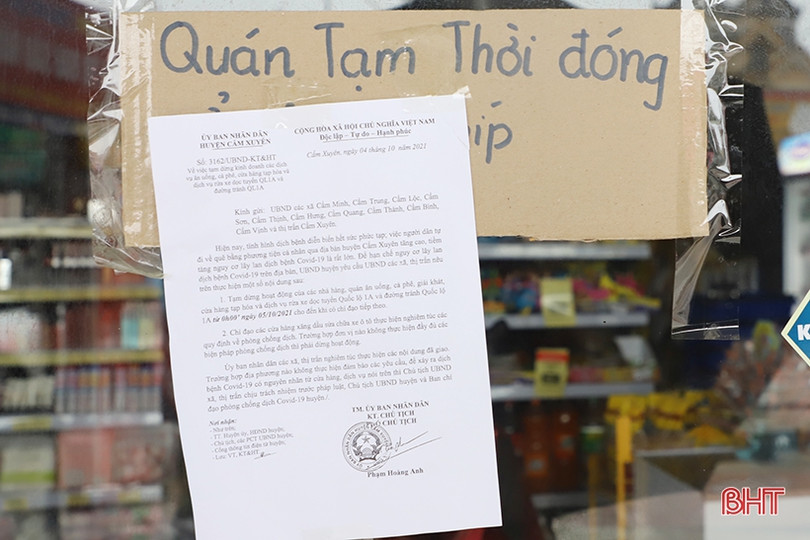 Quán Tạm Thời đóng
ỦY BAN NHÂN DÂN
HUYỆN CẨM XUYÊN
CỘNG HÒA XÃ HỘI CHỦ NGHĨA VIỆT NAM
Độc lập – Tự do – Hạnh phúc
Số: 3162/UBND-KT&HT
Cẩm Xuyên, ngày 04 tháng 10 năm 2021
Về việc tạm dừng kinh doanh các dịch
vụ ăn uống, cà phê, cửa hàng tạp hóa và
dịch vụ rửa xe dọc tuyến QL1A và
đường tránh QL1A
Kính gửi: UBND các xã Cẩm Minh, Cẩm Trung, Cẩm Lộc, Cẩm
Sơn, Cẩm Thịnh, Cẩm Hưng, Cẩm Quang, Cẩm Thành, Cẩm Bình,
Cẩm Vịnh và thị trấn Cẩm Xuyên.
Hiện nay, tình hình dịch bệnh diễn biến hết sức phức tạp, việc người dân tự
đi về quê bằng phương tiện cá nhân qua địa bàn huyện Cẩm Xuyên tăng cao, tiềm
tàng nguy cơ lây lan dịch bệnh Covid-19 là rất lớn. Để hạn chế nguy cơ lây lan
dịch bệnh Covid-19 trên địa bàn, UBND huyện yêu cầu UBND các xã, thị trấn nêu
trên thực hiện một số nội dung sau:
1. Tạm dừng hoạt động của các nhà hàng, quán ăn uống, cà phê, giải khát,
cửa hàng tạp hóa và dịch vụ rửa xe dọc tuyến Quốc lộ 1A và đường tránh Quốc lộ
1A từ 0h00' ngày 05/10/2021 cho đến khi có chỉ đạo tiếp theo.
2. Chỉ đạo các cửa hàng xăng dầu sửa chữa xe ô tô thực hiện nghiêm túc các
quy định về phòng chống dịch. Trường hợp đơn vị nào không thực hiện đầy đủ các
biện pháp phòng chống dịch thì phải dừng hoạt động.
Ủy ban nhân dân các xã, thị trấn nghiêm túc thực hiện các nội dung đã giao.
Trường hợp địa phương nào không thực hiện đảm bảo các yêu cầu, để xảy ra dịch
bệnh Covid-19 có nguyên nhân từ cửa hàng, dịch vụ nói trên thì Chủ tịch UBND
xã, thị trấn chịu trách nhiệm trước pháp luật, Chủ tịch UBND huyện và Ban chỉ
đạo phòng chống dịch Covid-19 huyện./.
Nơi nhận:
- Như trên;
- TT. Huyện ủy, HĐND huyện;
- Chủ tịch, các PCT UBND huyện;
- Cổng thông tin điện tử huyện;
- Lưu: VT, KT&HT.
TM. ỦY BAN NHÂN DÂN
KT. CHỦ TỊCH
PHÓ CHỦ TỊCH
Phạm Hoàng Anh
BHT